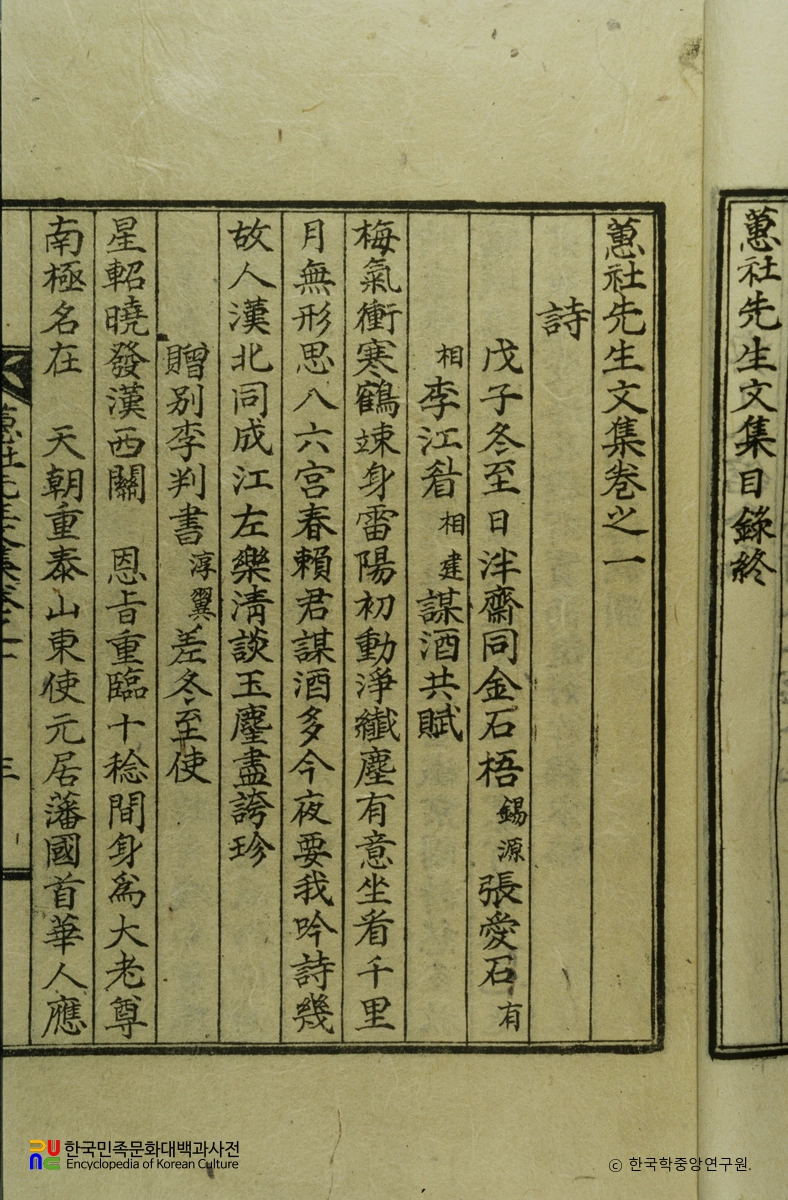 蕙社先生文集目錄終
蕙社先生文集卷之一
詩
戊子冬至日泮齋同金石梧錫源張愛石有
相李江㸔相建謀酒共賦
梅氣衝寒鶴竦身雷陽初動淨纖塵有意坐看千里
月無形思八六宮春賴君謀酒多今夜要我吟詩幾
故人漢北同成江左樂淸談玉麈盡誇珍
贈別李判書淳翼差冬至使
星軺曉發漢西關 恩旨重臨十稔間身爲大老尊
南極名在 天朝重泰山東使元居藩國首華人應
三
한국민족문화대백과사전
Encyclopedia of Korean Culture
© 한국학중앙연구원.